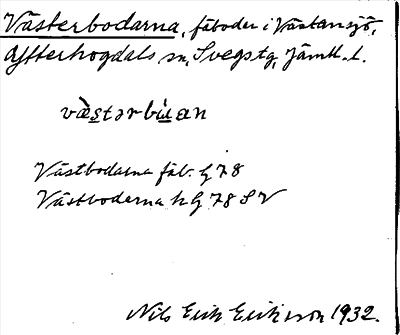 Västerbodarna, fäboder i Västansjö,
Ytterhogdals sn, Svegs tg, Jämtl. l.
væ̀stərbú̀an
Västbodarna fäb. G 78
Västboderna h G 78 SV
Nils Erik Eriksson 1932.